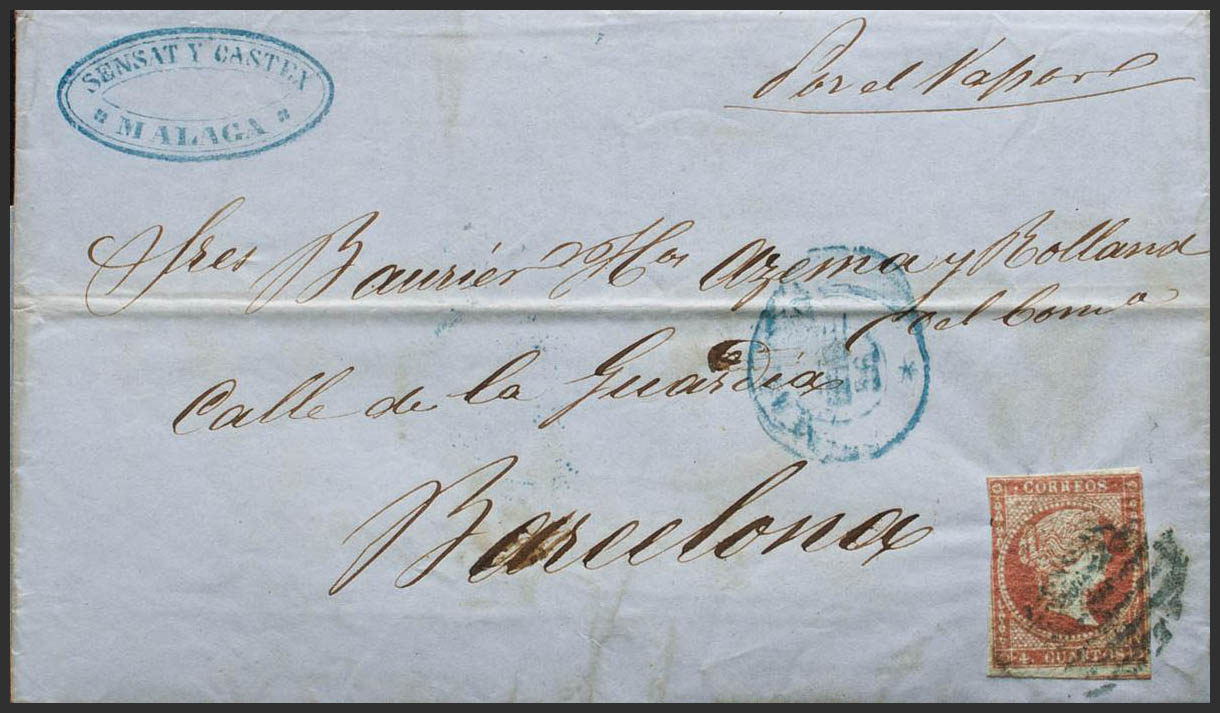 SENSAT Y CASTEX
MALAGA
Por el Vapor
Sres Baurier Hos Azema y Rolland
del Coma
Calle de la Guardia
Barcelona
CORREOS
4. CUARTOS